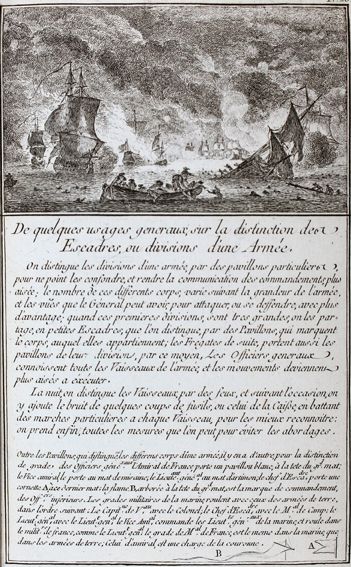 De quelques usages generaux, sur la distinction des
Escadres, ou divisions d'une Armée.
On distingue les divisions d'une armée, par des pavillons particuliers
pour ne point les confondre, et rendre la communication des commandements plus
aisée; le nombre de ces différents corps, varie suivant la grandeur de l'armée,
et les vües que le General peut avoir, pour attaquer, ou se deffendre, avec plus
d'avantage; quand ces premieres divisions, sont tres grandes, on les par-
tage, en petites Escadres, que l'on distingue, par des Pavillons, qui marquent
le corps, auquel elles appartiennent; les Frégates de suite, portent aussi les
pavillons de leurs divisions, par ce moyen, Les Officiers generaux
connoissent touts les Vaisseaux de l'armée, et les mouvements deviennent
plus aisés a éxécuter.
La nuit, on distingue les Vaisseaux, par des feux, et suivant l'occasion, on
y ajoute le bruit de quelques coups de fusils, ou celui de la Caisse, en battant
des marches particulieres a chaque Vaisseau, pour les mieux reconnoitre:
on prend enfin, toutes les mesures que l'on peut pour éviter les abordages.
Outre les Pavillons, qui distinguent les différens corps d'une armée, il y en a d'autre, pour la distinction
de grades des Officiers géné. L'Amiral de France porte un pavillon blanc, à la tete du gd. mat;
le Vice amiral, le porte au mat de misaine, le Lieut. géné. au mat d'artimon, le chef d'Esca. porte une
cornette a ce dernier mat; la flame, Barboré à la tete du gd. mat, est la marque de commandement,
des Offers. inferieurs. Les grades militaires de la marine, roulent avec ceux des armées de terre,
dans l'ordre suivant: Le Capit. de Vau. avec le colonel, le Chef d'Esca. avec le M. de Camp; le
Lieut. gen. avec le Lieut. gen. le Vice Am. commande les Lieut. gen. de la marine, et roule dans
le milit. de france, comme le Lieut. gen. le grade de M. de France, est le meme dans la marine, que
dans les armées de terre; Celui d'amiral est une charge de la couronne.
B
A